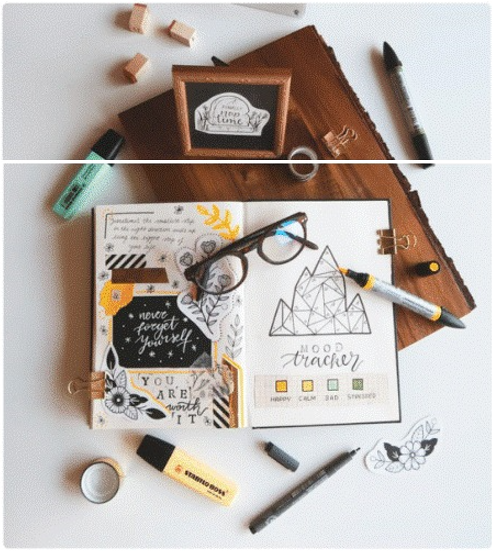 time
Sometimes the smallest step
in the right direction ends up
being the biggest step of
your life
never
forget
yourself
YOU
ARE
worth
IT
MOOD
tracker
HAPPY CALM SAD STRESSED
STABILO BOSS